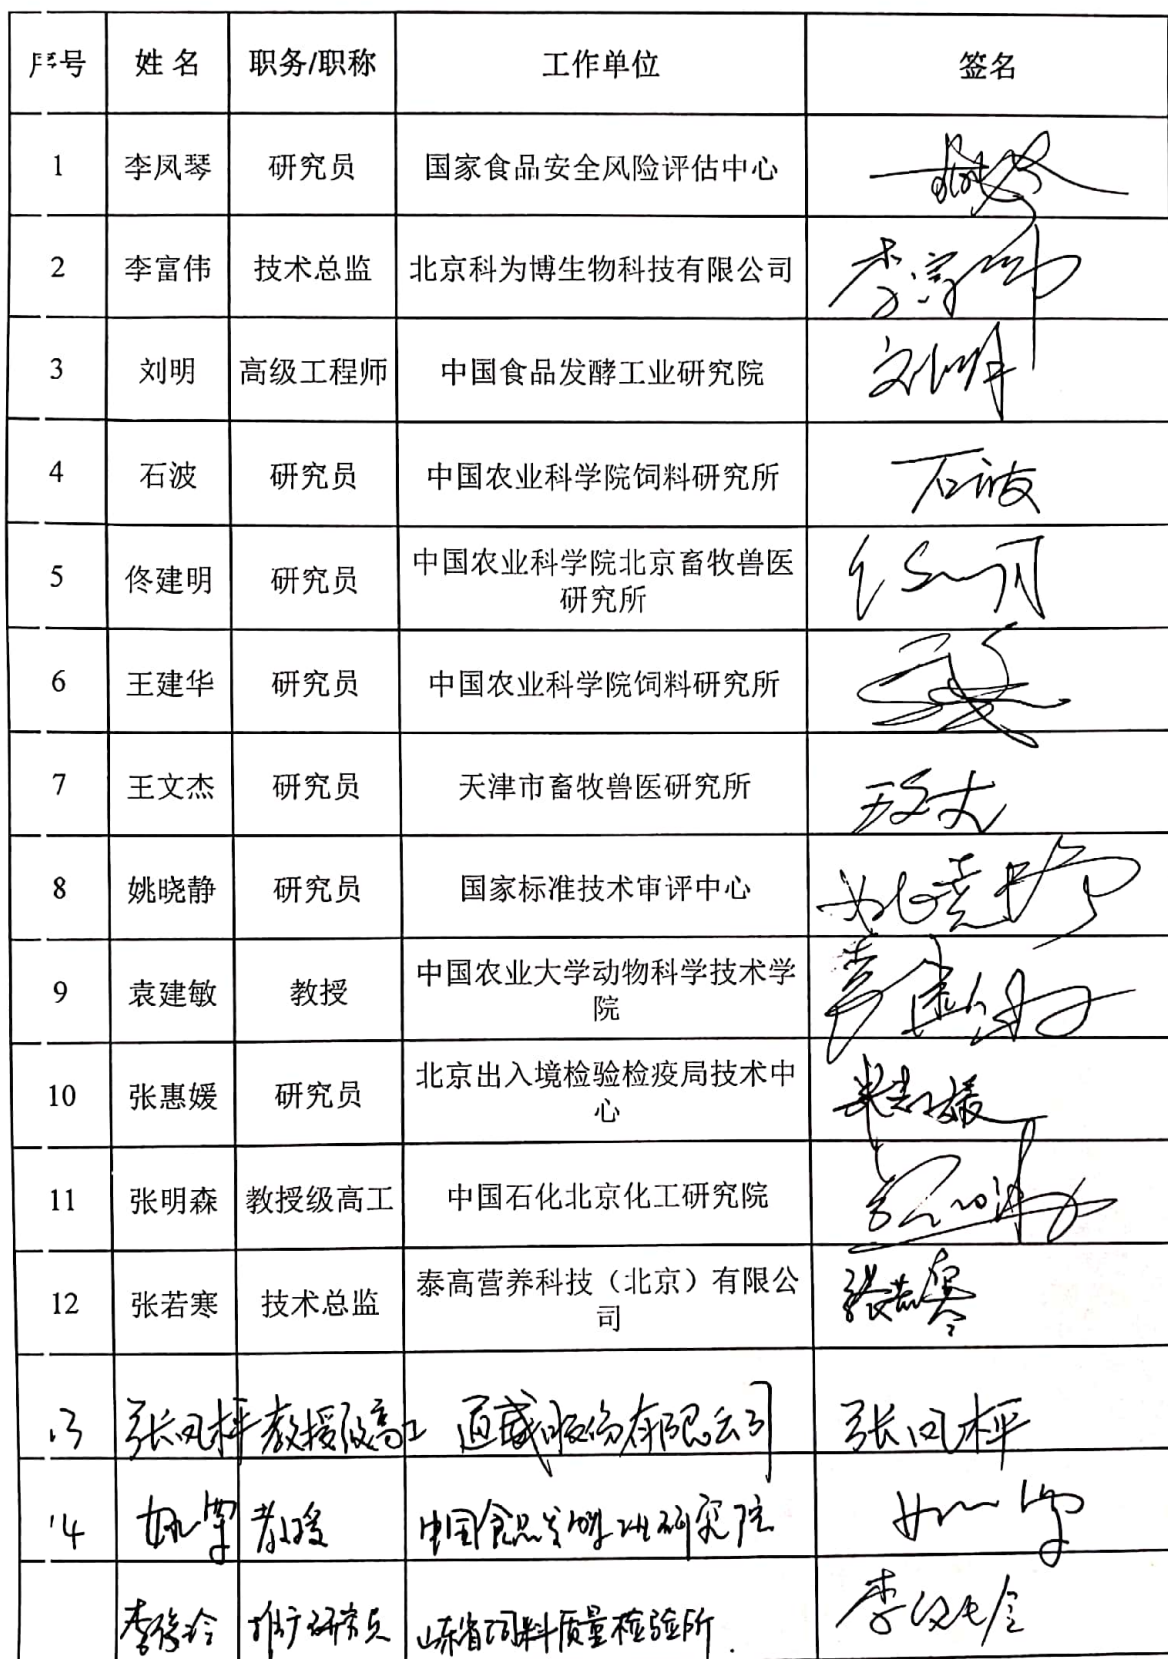 序号 姓 名 职务/职称 工作单位 签名
1 李凤琴 研究员 国家食品安全风险评估中心
2 李富伟 技术总监 北京科为博生物科技有限公司 李富伟
3 刘明 高级工程师 中国食品发酵工业研究院 刘明
4 石波 研究员 中国农业科学院饲料研究所 石波
5 佟建明 研究员 中国农业科学院北京畜牧兽医
研究所
6 王建华 研究员 中国农业科学院饲料研究所
7 王文杰 研究员 天津市畜牧兽医研究所 王文杰
8 姚晓静 研究员 国家标准技术审评中心 姚晓静
9 袁建敏 教授 中国农业大学动物科学技术学
院 袁建敏
10 张惠媛 研究员 北京出入境检验检疫局技术中
心 张惠媛
11 张明森 教授级高工 中国石化北京化工研究院
12 张若寒 技术总监 泰高营养科技（北京）有限公
司 张若寒
13 张凤枰 教授级高工 通威股份有限公司 张凤枰
14 教授 中国食品发酵工业研究院
李俊玲 推广研究员 山东省饲料质量检验所 李俊玲